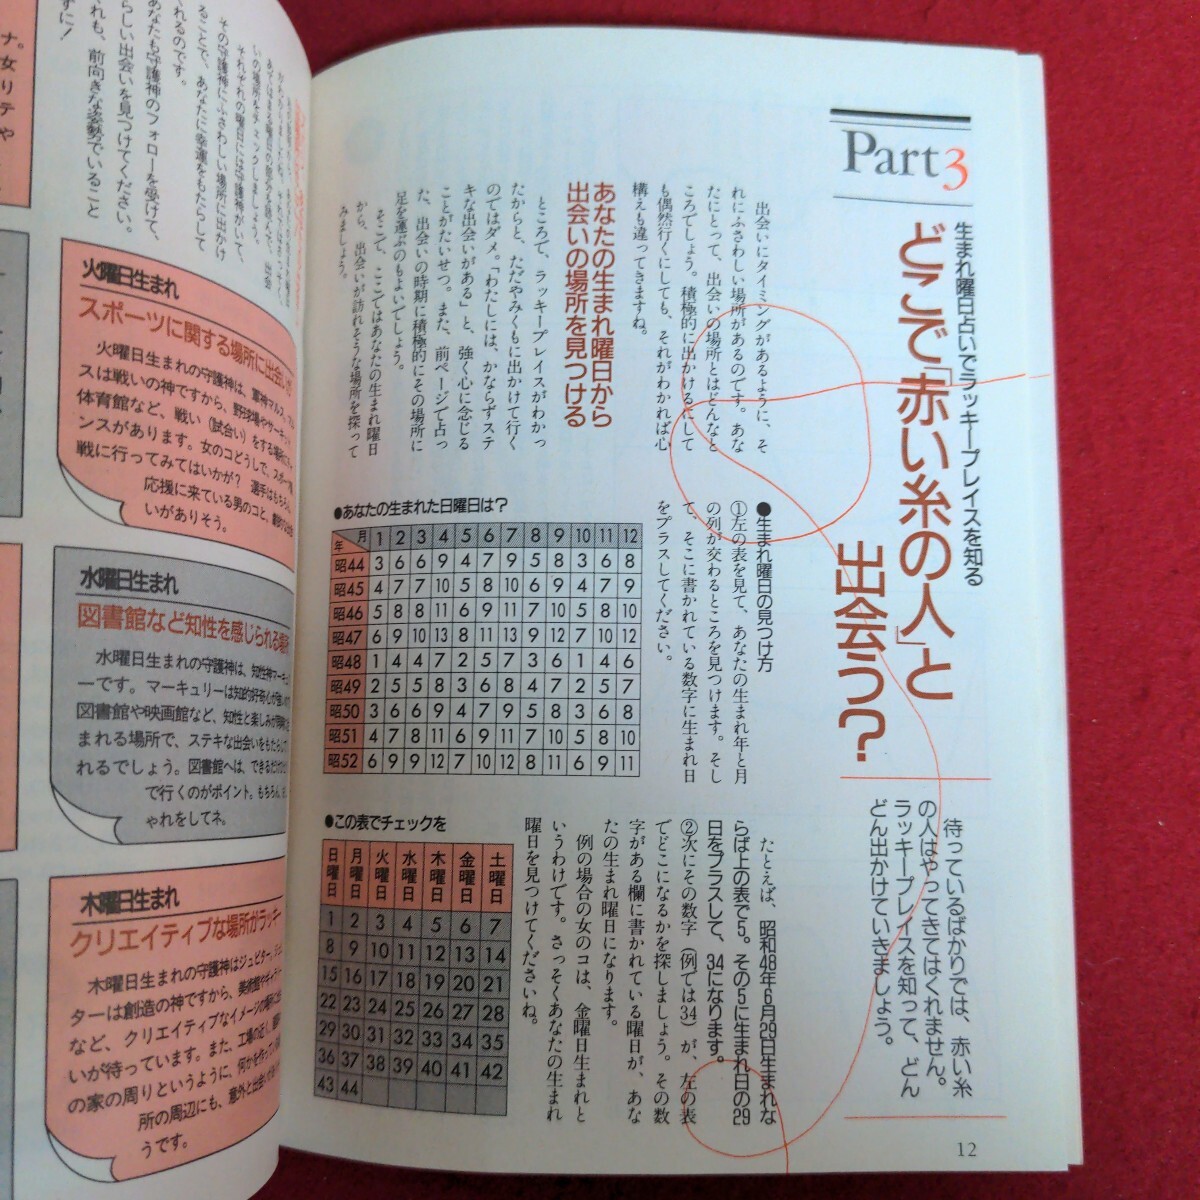 Part3
生まれ曜日占いでラッキープレイスを知る
どこで「赤い糸の人」と
出会う?
待っているばかりでは、赤い糸
の人はやってきてはくれません。
ラッキープレイスを知って、どん
どん出かけていきましょう。
出会いにタイミングがあるように、そ
れにふさわしい場所があるのです。あな
たにとって、出会いの場所とはどんなと
ころでしょう。積極的に出かけるにして
も偶然行くにしても、それがわかれば心
構えも違ってきますね。
あなたの生まれ曜日から
出会いの場所を見つける
ところで、ラッキープレイスがわかっ
たからと、ただやみくもに出かけて行く
のではダメ。「わたしには、かならずステ
キな出会いがある」と、強く心に念じる
ことがたいせつ。また、前ページで占っ
た、出会いの時期に積極的にその場所に
足を運ぶのもよいでしょう。
そこで、ここではあなたの生まれ曜日
から、出会いが訪れそうな場所を探って
みましょう。
●生まれ曜日の見つけ方
①左の表を見て、あなたの生まれ年と月
の列が交わるところを見つけます。そし
て、そこに書かれている数字に生まれ日
をプラスしてください。
●あなたの生まれた日曜日は?
月 1 2 3 4 5 6 7 8 9 10 11 12
年
昭44 3 6 6 9 4 7 9 5 8 3 6 8
昭45 4 7 7 10 5 8 10 6 9 4 7 9
昭46 5 8 8 11 6 9 11 7 10 5 8 10
昭47 6 9 10 13 8 11 13 9 12 7 10 12
昭48 1 4 4 7 2 5 7 3 6 1 4 6
昭49 2 5 5 8 3 6 8 4 7 2 5 7
昭50 3 6 6 9 4 7 9 5 8 3 6 8
昭51 4 7 8 11 6 9 11 7 10 5 8 10
昭52 6 9 9 12 7 10 12 8 11 6 9 11
たとえば、昭和48年6月29日生まれな
らば上の表で5。その5に生まれ日の29
日をプラスして、34になります。
②次にその数字(例では34)が、左の表
でどこになるかを探しましょう。その数
字がある欄に書かれている曜日が、あな
たの生まれ曜日になります。
例の場合の女のコは、金曜日生まれと
いうわけです。さっそくあなたの生まれ
曜日を見つけてくださいね。
●この表でチェックを
日曜日 月曜日 火曜日 水曜日 木曜日 金曜日 土曜日
1 2 3 4 5 6 7
8 9 10 11 12 13 14
15 16 17 18 19 20 21
22 23 24 25 26 27 28
29 30 31 32 33 34 35
36 37 38 39 40 41 42
43 44
12
それぞれの曜日には守護神がいて、
その守護神にふさわしい場所に出かけ
ることで、あなたに幸運をもたらして
れるのです。
あなたも守護神のフォローを受けて、
らしい出会いを見つけてください。
れも、前向きな姿勢でいること
ずに!
火曜日生まれ
スポーツに関する場所に出会いが
火曜日生まれの守護神は、軍神マルス。
スは戦いの神ですから、野球場やサーキッ
体育館など、戦い(試合い)をする場所に
ンスがあります。女のコどうしで、スポーツ
戦に行ってみてはいかが? 選手はもちろん、
応援に来ている男のコと、
いがありそう。
水曜日生まれ
図書館など知性を感じられる場所
水曜日生まれの守護神は、知性神マーキュ
ーです。マーキュリーは知的好奇心が
図書館や映画館など、知性と楽しみが
まれる場所で、ステキな出会いをもたらして
れるでしょう。図書館へは、できるだけ
で行くのがポイント。もちろん、
ゃれをしてネ。
木曜日生まれ
クリエイティブな場所がラッキー
木曜日生まれの守護神はジュピター。
ターは創造の神ですから、美術館やギャラ
など、クリエイティブなイメージの場所に
いが待っています。また、工場の近く、
の家の周りというように、何かを作っている
所の周辺にも、意外と出会いが
うです。